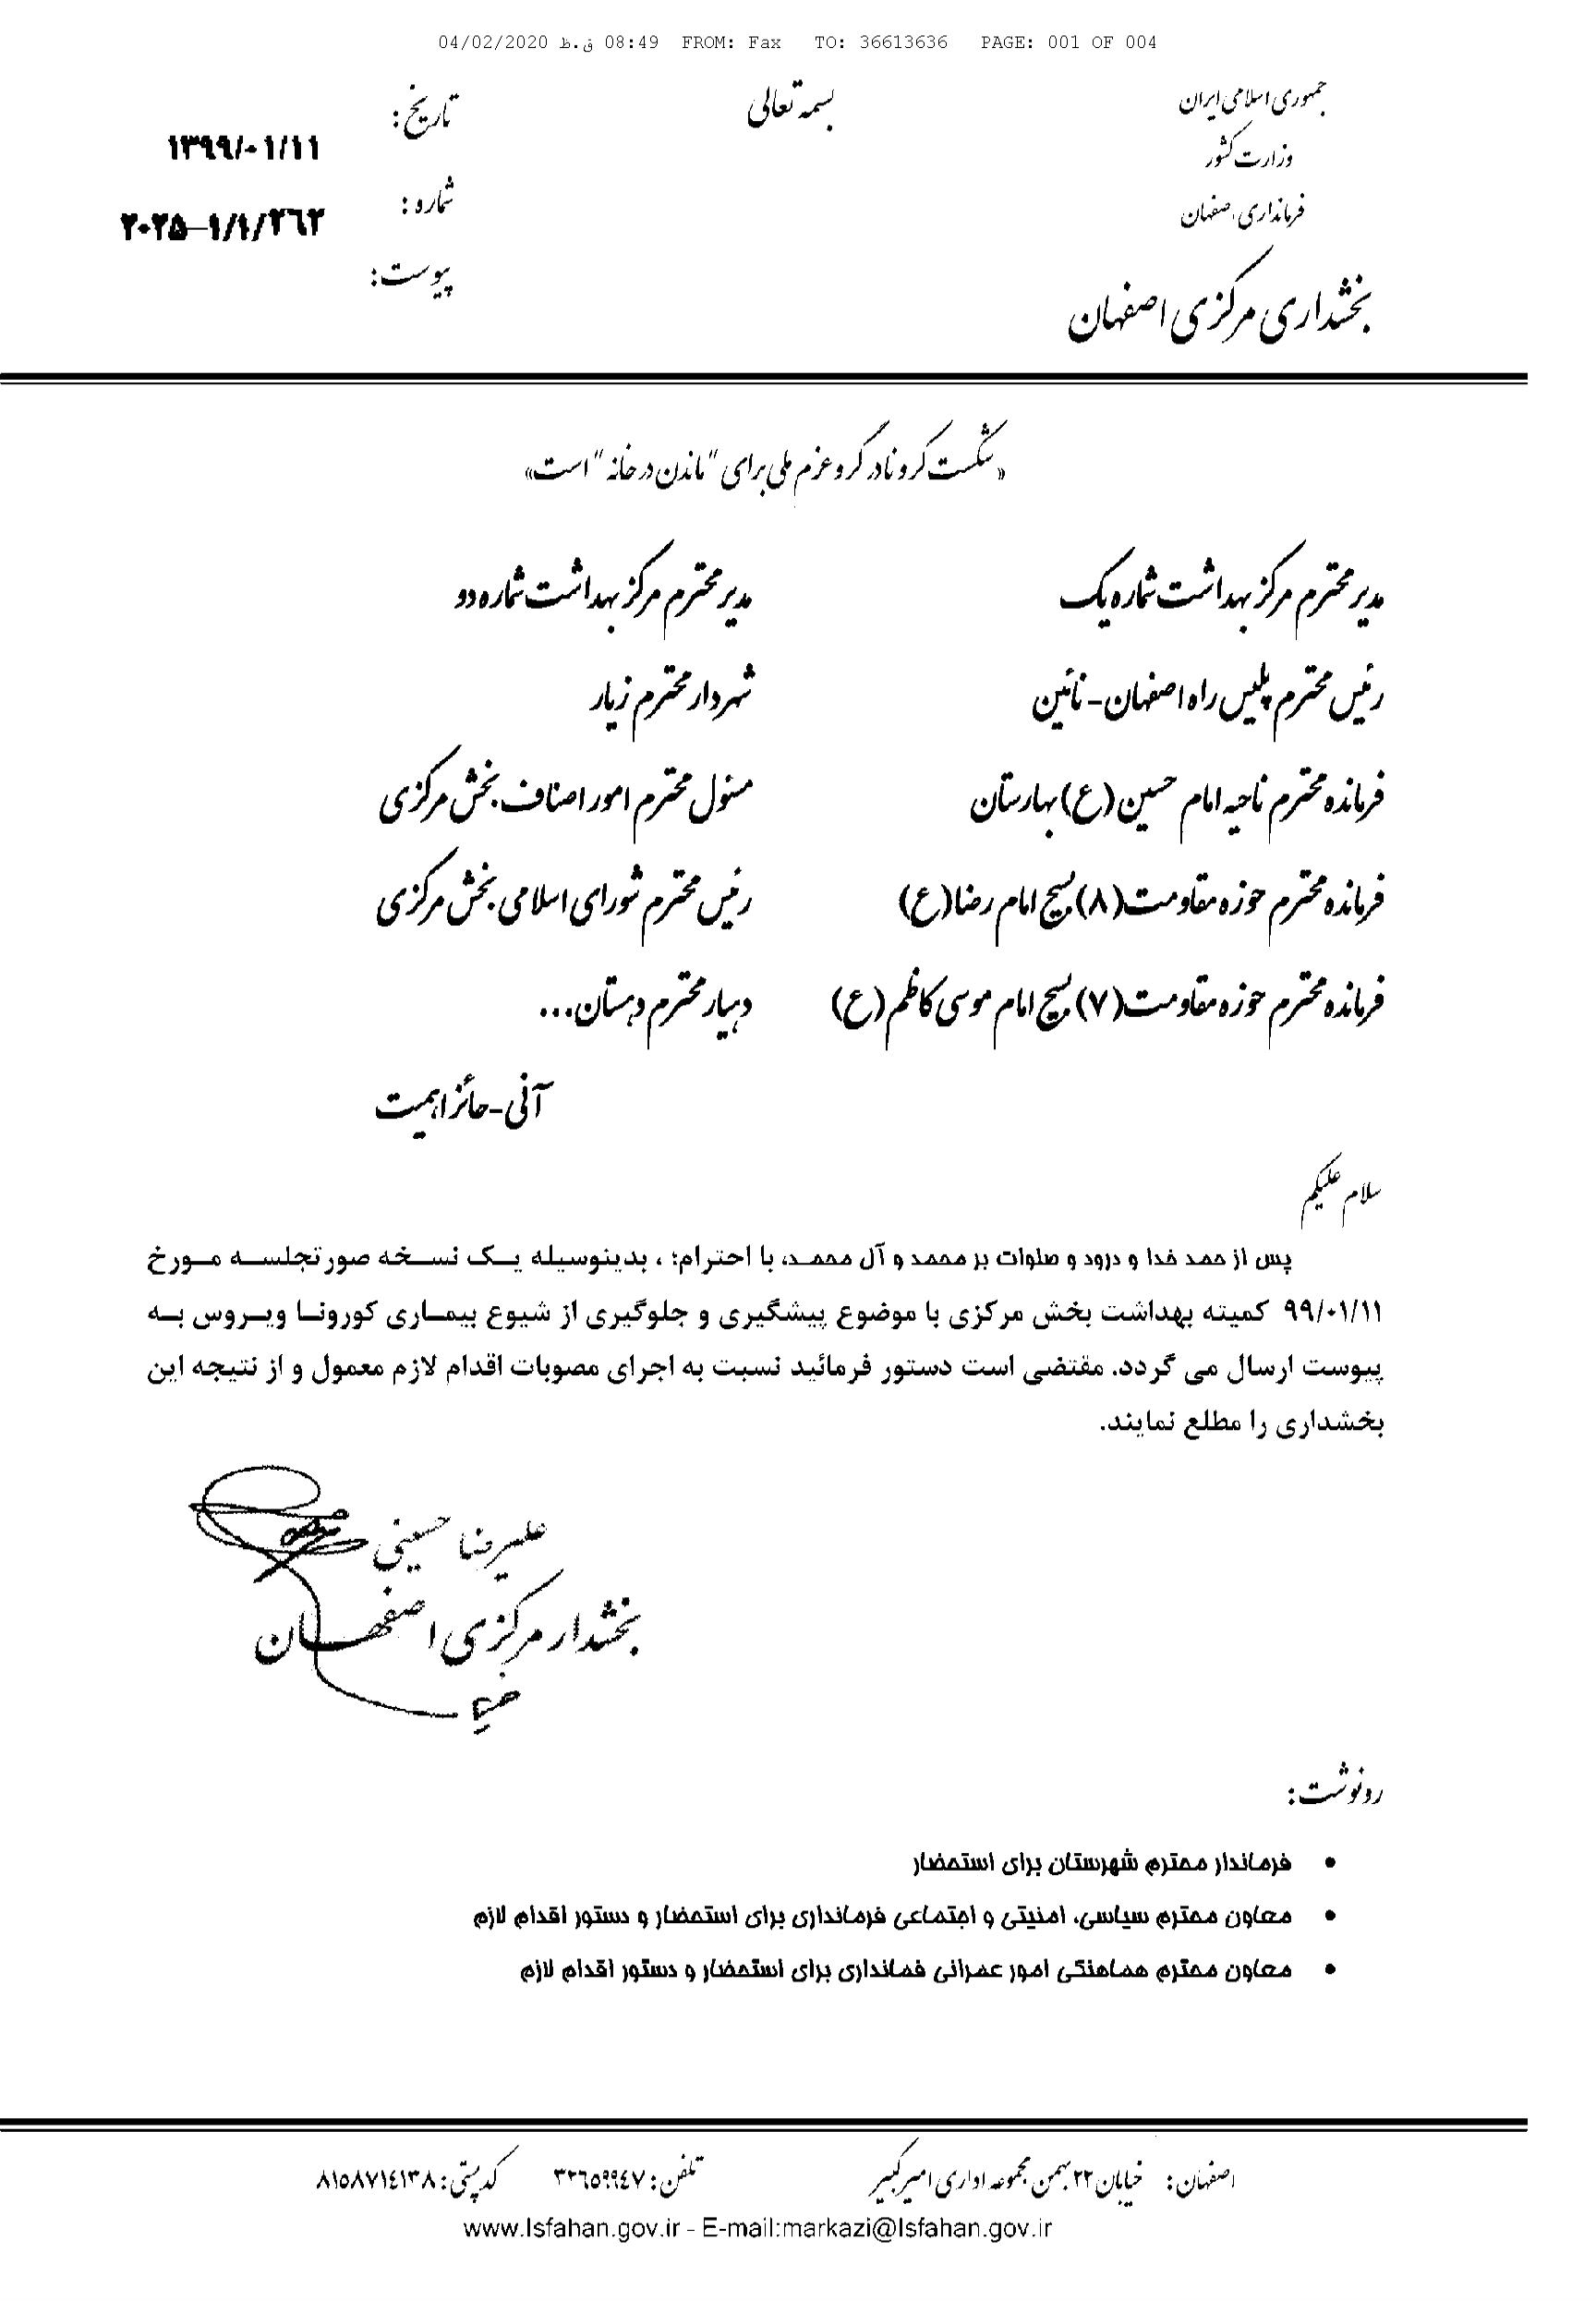 04/02/2020 ق.ظ 08:49 FROM: Fax TO: 36613636 PAGE: 001 OF 004
بسمه تعالی
جمهوری اسلامی ایران
وزارت کشور
فرمانداری اصفهان
بخشداری مرکزی اصفهان
تاریخ:
۱۳۹۹/۰۱/۱۱
شماره:
۲۰۲۵-۱/۱/۲۶۲
پیوست:
«شکست کرونا در گرو عزم ملی برای "ماندن در خانه" است»
مدیر محترم مرکز بهداشت شماره یک
مدیر محترم مرکز بهداشت شماره دو
رئیس محترم پلیس راه اصفهان-نائین
شهردار محترم زیار
فرمانده محترم ناحیه امام حسین(ع)بهارستان
مسئول محترم امور اصناف بخش مرکزی
فرمانده محترم حوزه مقاومت(۸)بسیج امام رضا(ع)
رئیس محترم شورای اسلامی بخش مرکزی
فرمانده محترم حوزه مقاومت(۷)بسیج امام موسی کاظم(ع)
دهیار محترم دهستان...
آنی-حائز اهمیت
سلام علیکم
پس از حمد خدا و درود و صلوات بر محمد و آل محمد، با احترام؛ ، بدینوسیله یک نسخه صورتجلسه مورخ
۹۹/۰۱/۱۱ کمیته بهداشت بخش مرکزی با موضوع پیشگیری و جلوگیری از شیوع بیماری کورونا ویروس به
پیوست ارسال می گردد. مقتضی است دستور فرمائید نسبت به اجرای مصوبات اقدام لازم معمول و از نتیجه این
بخشداری را مطلع نمایند.
علیرضا حسینی
بخشدار مرکزی اصفهان
رونوشت:
• فرماندار محترم شهرستان برای استحضار
• معاون محترم سیاسی، امنیتی و اجتماعی فرمانداری برای استحضار و دستور اقدام لازم
• معاون محترم هماهنگی امور عمرانی فمانداری برای استحضار و دستور اقدام لازم
اصفهان: خیابان ۲۲ بهمن مجموعه اداری امیرکبیر تلفن: ۳۲۶۵۹۹۴۷ کدپستی: ۸۱۵۸۷۱۴۱۳۸
www.Isfahan.gov.ir - E-mail:markazi@Isfahan.gov.ir